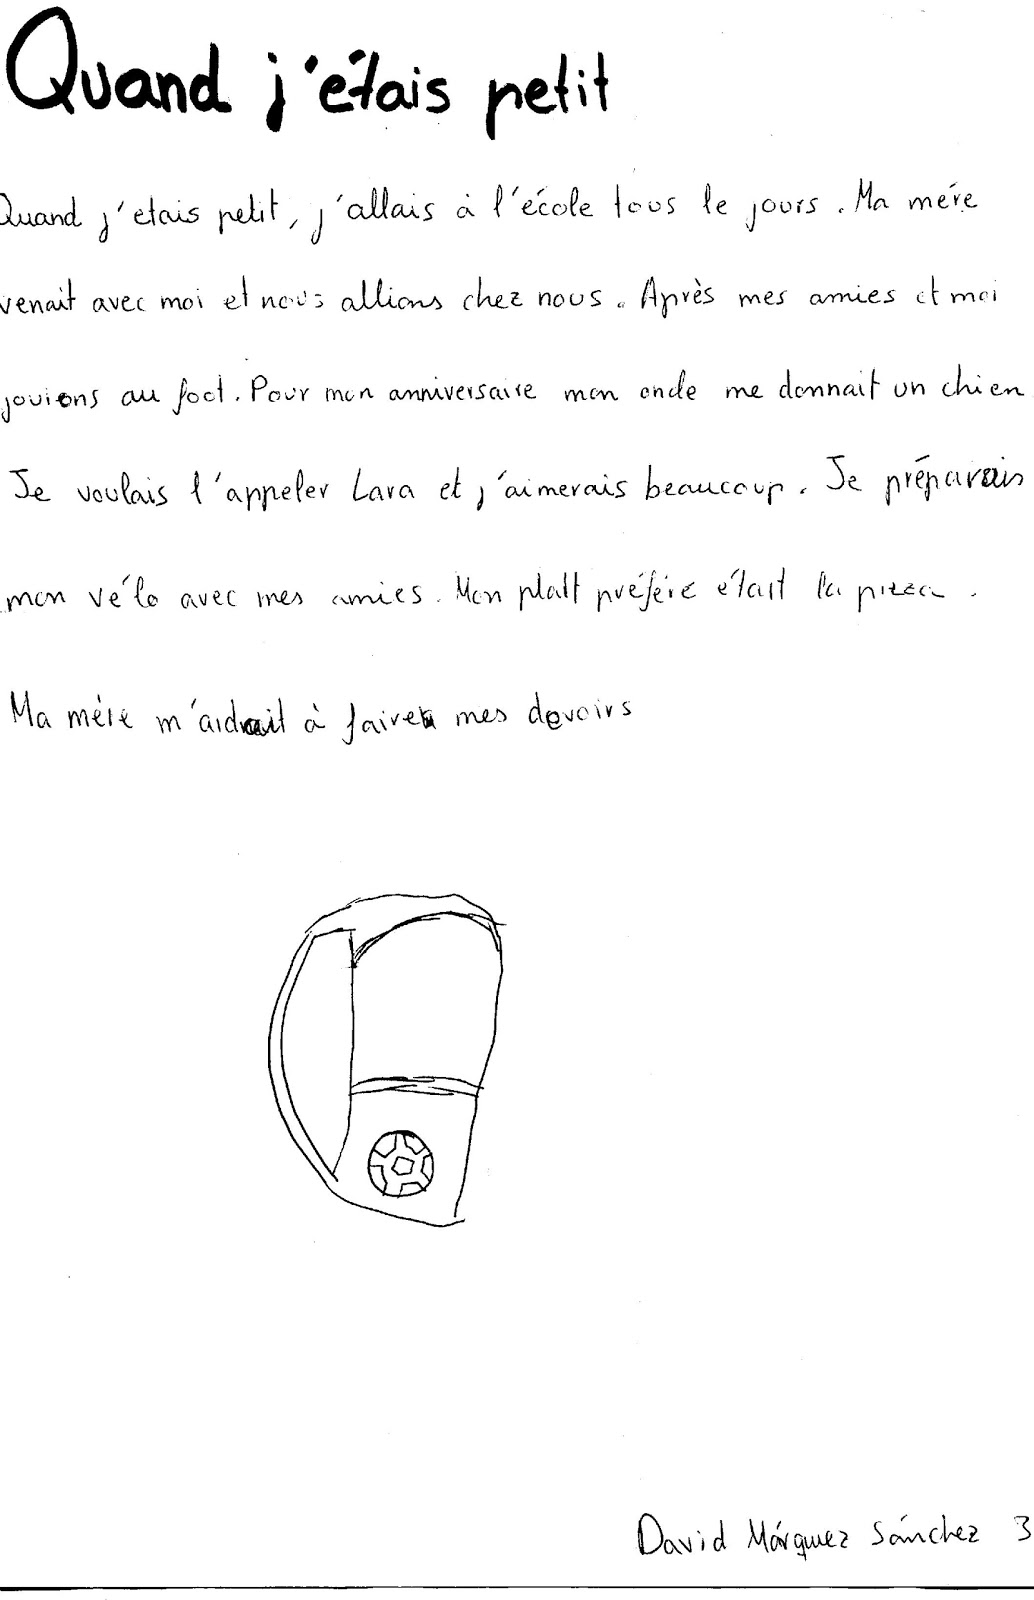 Quand j'étais petit
Quand j'etais petit, j'allais à l'école tous le jours. Ma mére
venait avec moi et nous allions chez nous. Après mes amies et moi
jouions au foot. Pour mon anniversaire mon oncle me donnait un chien
Je voulais l'appeler Lara et j'aimerais beaucoup. Je préparais
mon vélo avec mes amies. Mon platt préféré était la pizza.
Ma mére m'aidait à faire mes devoirs
David Márquez Sánchez 3